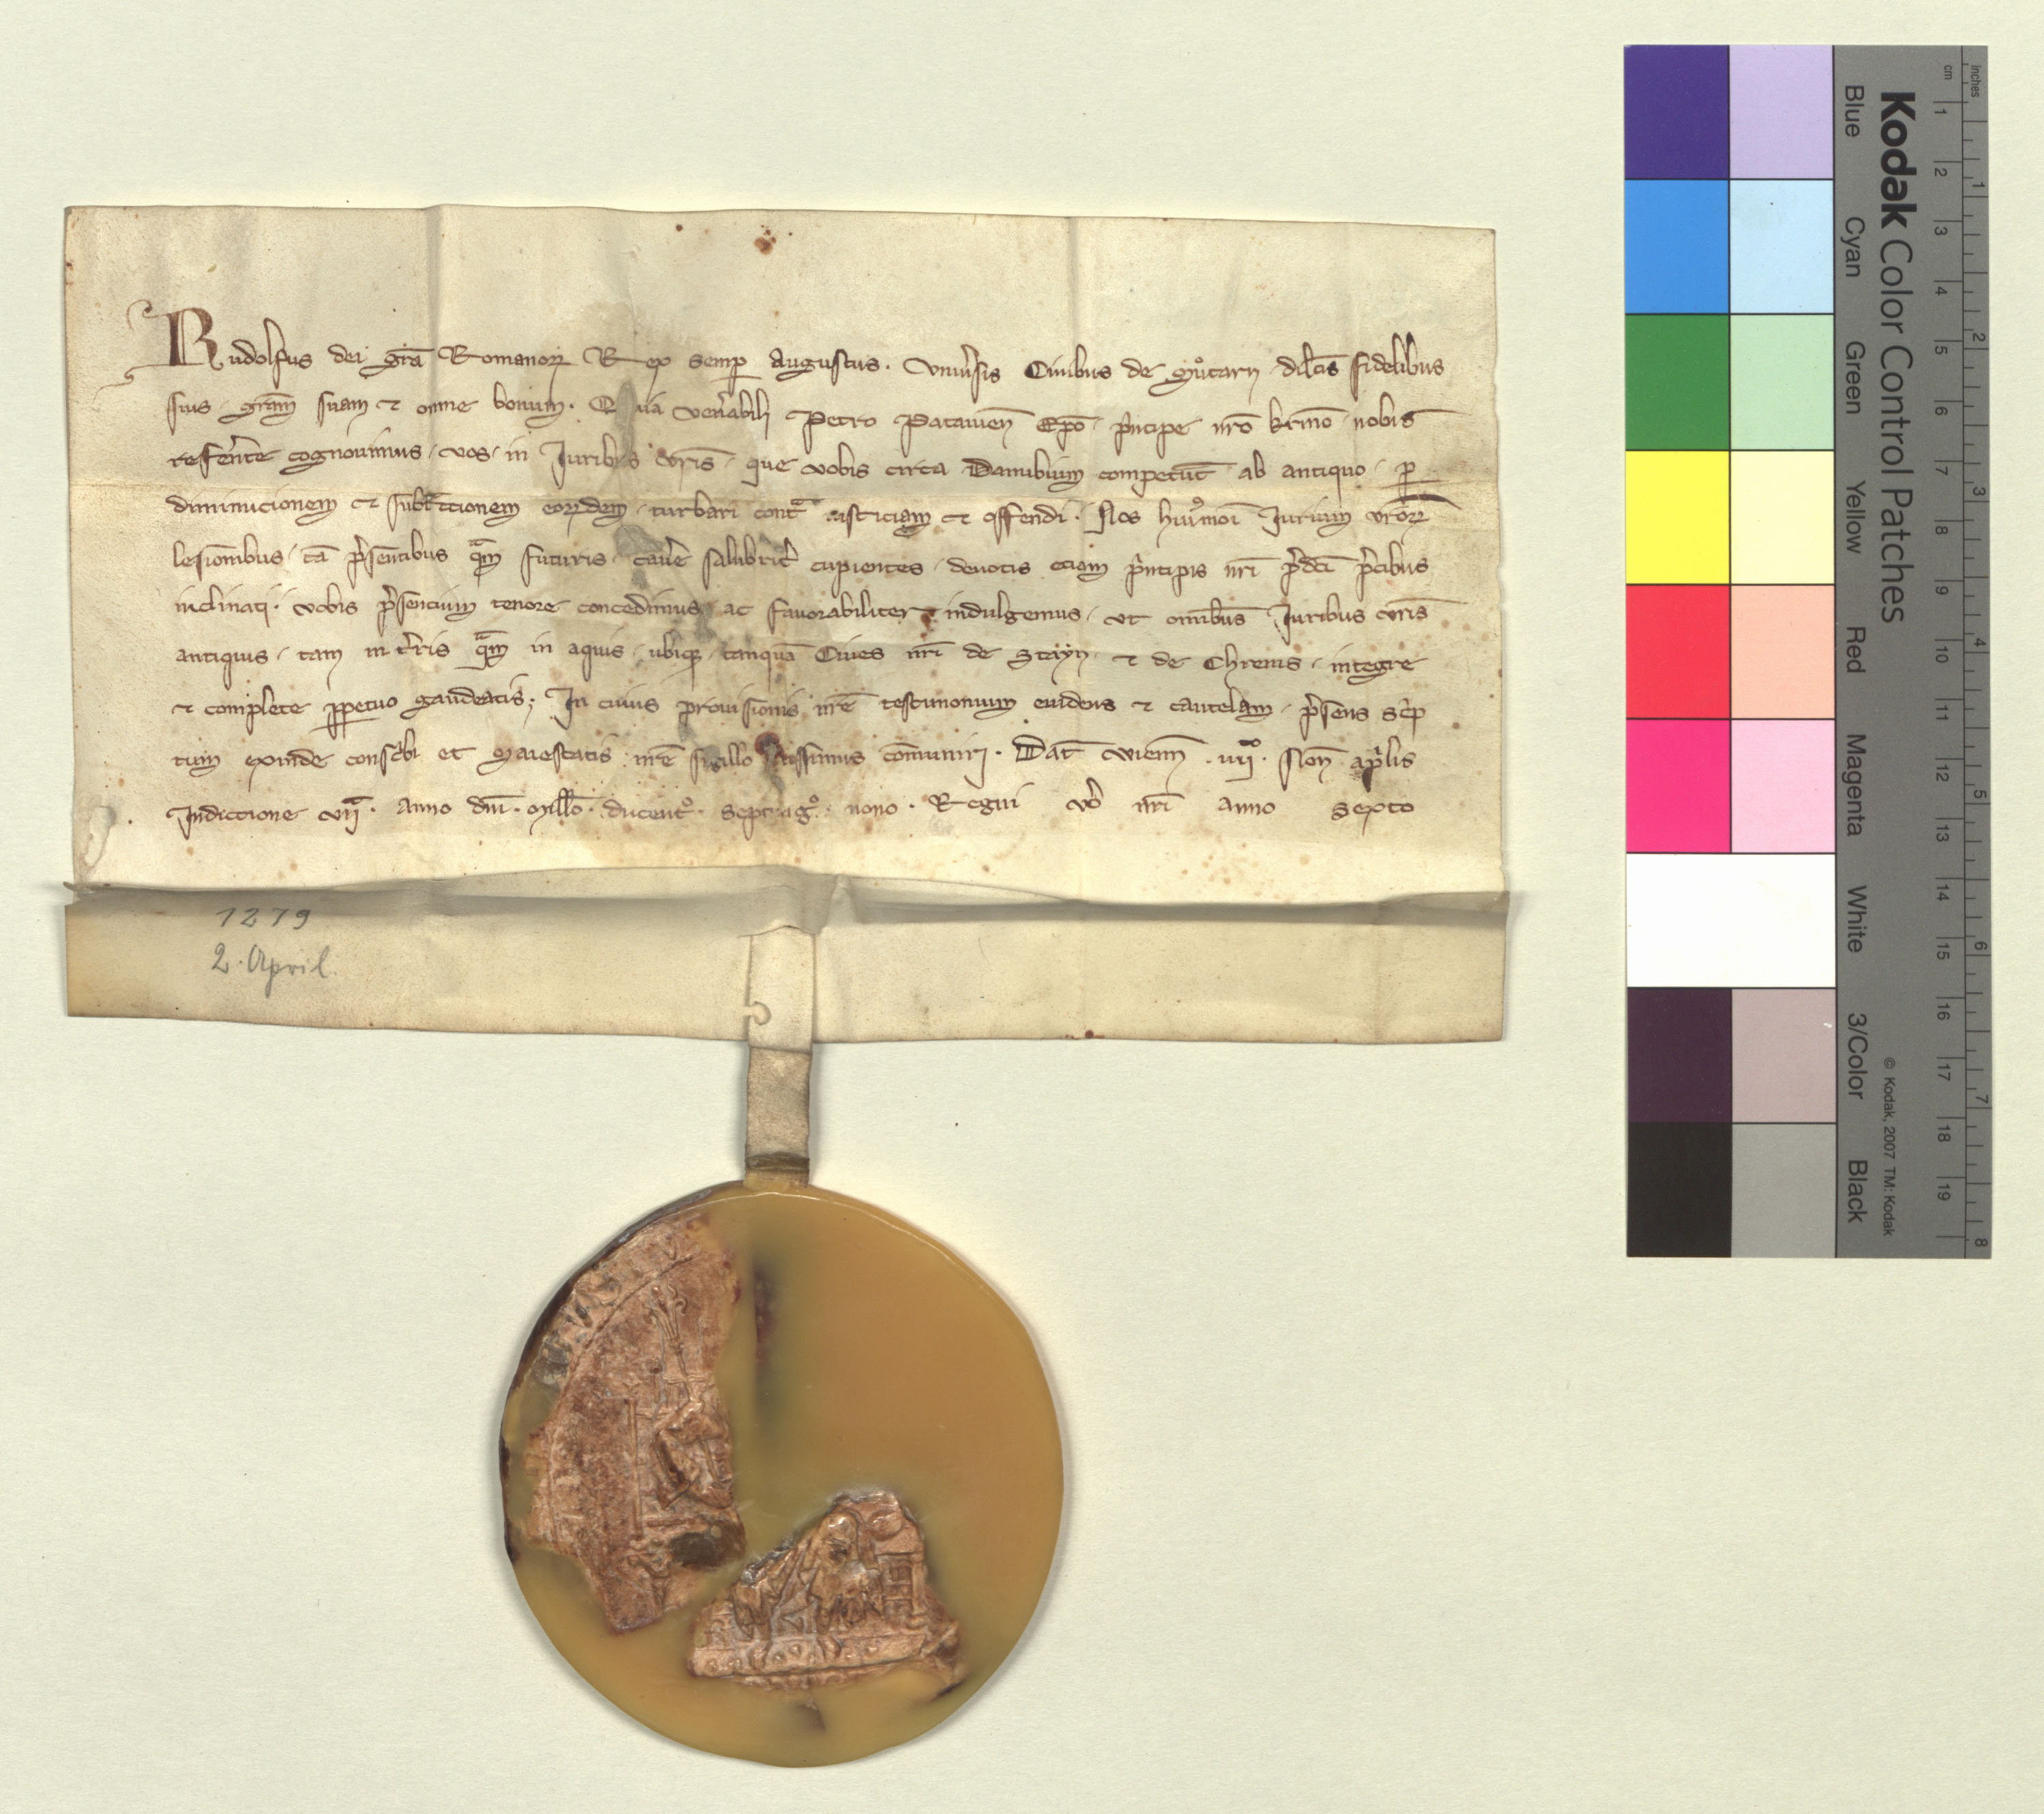 Rudolfus dei gr̄a Romanoꝝ Rex semꝑ Augustus. Vniu̓sis Ciuibus de Mu̓tarn dilc̄is fidelibus
suis gr̄am suam ⁊ omne bonum. Quia ven̓abili Petro Patauien̄ Ep̄o pͥncipe nr̄o kr̄mo nobis
refen̓te cognouimus vos in Juribus vr̄is que vobis circa Danubium competūt ab antiquo ꝑ
diminucionem ⁊ subtᵃctionem eoꝝdem turbari contᵃ iusticiam ⁊ offendi. Nos huiᵒmōi Jurium vr̄oꝝ
lesionibus tā p̓sentibus qᵃm futuris caue̓ salubrit̓ cupientes deuotis eciam pͥncipis nr̄i p̓dc̄i p̓cibus
inclinati. vobis p̓sencium tenore concedimus ac fauorabiliter indulgemus vt omībus Juribus vr̄is
antiquis tam in t̓ris qᵃm in aquis ubiqꝫ tanquā Ciues nr̄i de Stayn ⁊ de Chrems integre
⁊ complete ꝑpetuo gaudeatis; In cuius prouisionis nr̄e testimonium euidens ⁊ cautelam p̓sens sc̓p
tum exinde consc̓bi et Maiestatis nr̄e sigillo iussimus cōmuniri. Dat̄ Vienn̄ .iiijᵒ. Non̄ ap̓lis
Indictione vijᵃ. anno dn̄i. Mill̄o. ducentᵒ. septuagᵒ. nono. Regni v̓o nr̄i anno sexto
1279
2. April.
Kodak Color Control Patches
Blue Cyan Green Yellow Red Magenta White 3/Color Black
© Kodak, 2007 TM: Kodak
cm 1 2 3 4 5 6 7 8 9 10 11 12 13 14 15 16 17 18 19
inches 1 2 3 4 5 6 7 8